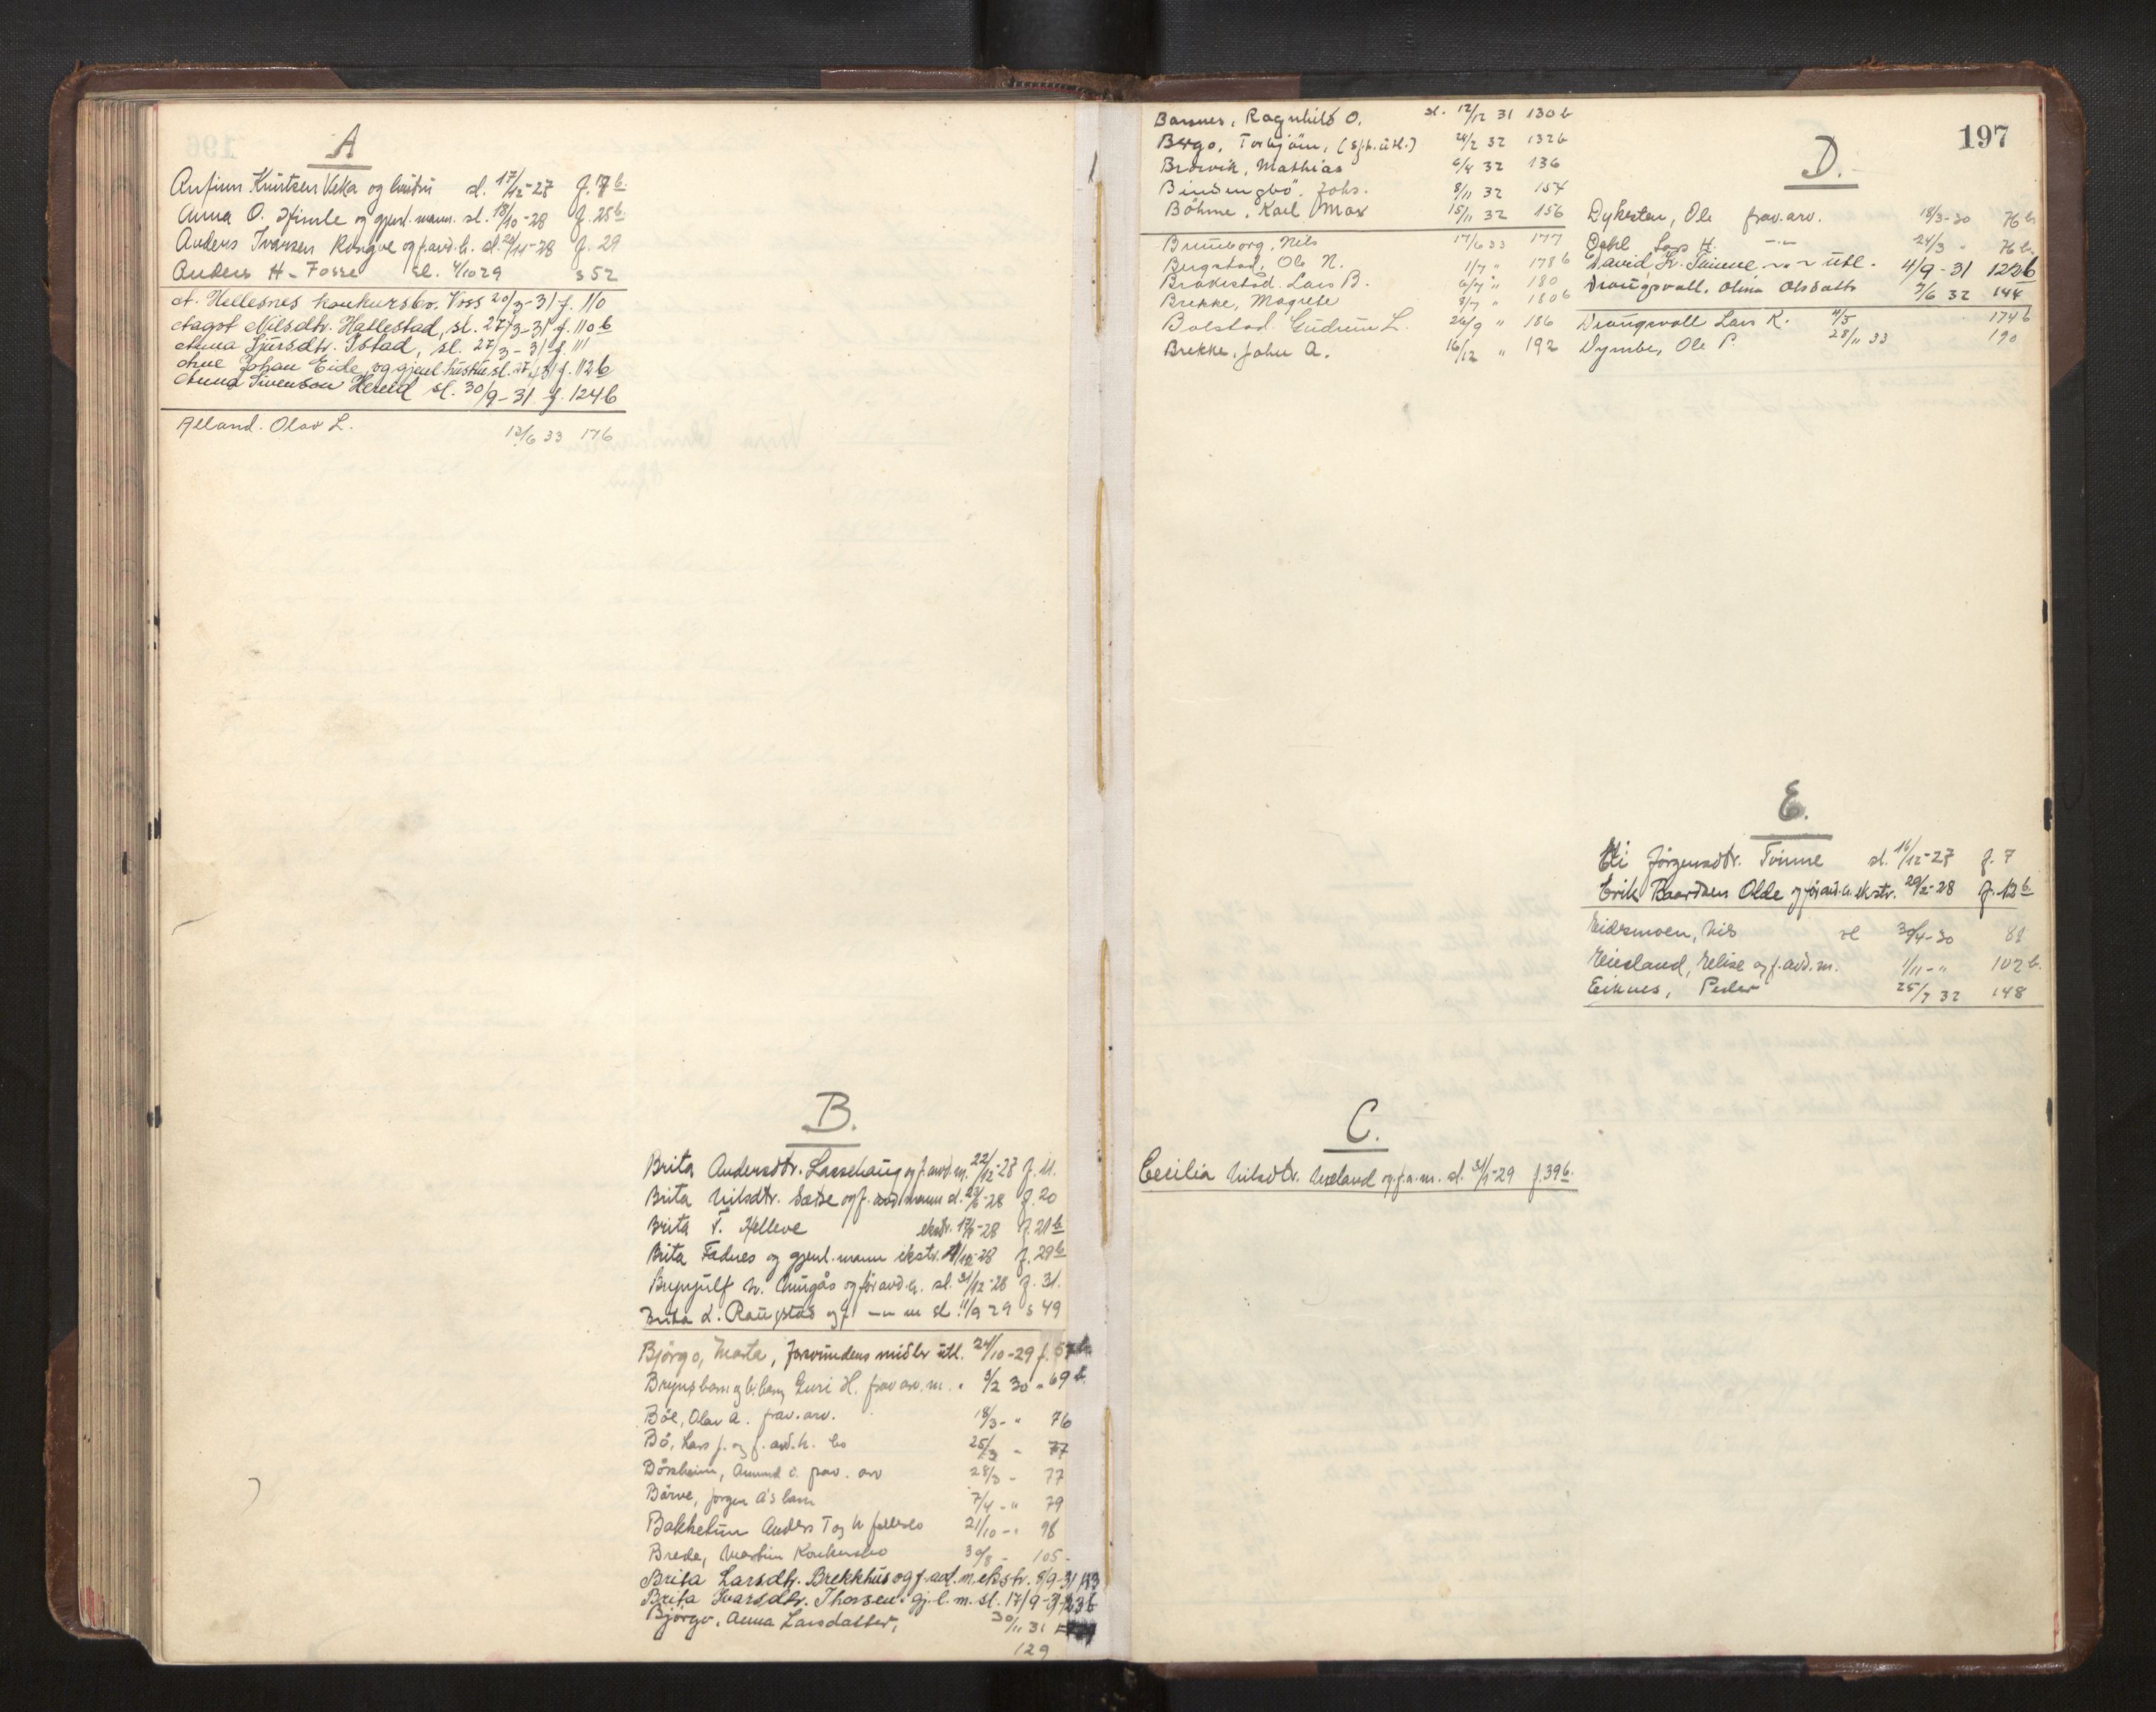 A
Anfinn Knutsen Veka og hustru sl. 17/12-27 f. 7b.
Anna O. Himle og gjenl. mann. sl. 18/10-28 f. 25b.
Anders Ivarsen Rongve og f. avd. h. sl. /11-28 f. 29
Anders H. Fosse sl. 4/10 29 s 52
A. Hellesnes konkursbo. Voss 20/3-31 f. 110
Aagot Nilsdtr. Hallestad, sl. 27/3-31 f. 110b
Anna Sjursdtr. Istad, sl. 27/3-31 f. 111
Arne Johan Eide, og gjenl. hustru sl. f. 112b
Anna Svenson Hereid sl. 30/9-31 f. 124b
Afland. Olav L. 13/6 33 176
B.
Brita Andersdtr. Lassehaug og f. avd. m. 22/12-27 f. 11.
Brita Nilsdtr. Sætre og f. avd. mann sl. 23/6-28 f. 20
Brita T. Helleve ekstr. -28 f. 21b
Brita Fadnes og gjenl. mann ekstr. -28 f. 29b
Brynjulf N. Ningås og før avd. h. sl. 31/12-28 f. 31.
Brita L. Raugstad og f. -"- m sl. 11/9 29 s 49
Bjørgo, Marta, forsvundens midler utl. 24/10-29 f. 57b
Guri H. fravar. m. " 3/2 30 " 69b.
Bøe, Olav A. frav. arv. 18/3 - " 76
Bø, Lars J. og f. avd. h. bo 25/3 - 77
Dårsheim, Amund frav. arv 28/3 - 77
Børve, Jørgen A's barn 7/4 - " 79
Bakketun Anders T og h fellesbo 21/10 - " 98
Brede, Martin Konkursbo 30/8 - 105 -
Brita Larsdtr. Brekkhus og f. avd. m. ekstr. 8/9-31
Brita Ivarsdtr. Thorsen. gj. l. m. sl. 17/9-31 123b
Bjørgo. Anna Larsdatter, 30/11 31
129
197
Barsnes, Ragnhild O. sl. 12/12 31 130b
Bergo, Torbjørn, 24/2 32 132b
Brørvik, Mathias 6/4 32 136
Bindingbø. Johs. 8/11 32 154
Böhme, Karl Max 15/11 32 156
Brunborg, Nils 17/6 33 177
Bergstad, Ole N. 1/7 " 178b
Bråkestad. Lars B. 6/7 " 180
Brekke, Magrete 8/7 " 180b
Bolstad. Gudrun L. 26/9 " 186
Brekke, John A. 16/12 " 192
C.
Cecilia Nilsdtr. Væland og. f. a. m. sl. 31/5-29 f. 39b.
D.
Dykesten, Ole frav. arv. 18/3-30 76b
Dahl Lars H. -"- 24/3 " 76b.
David K. Tvinne -"- utl. 4/9-31 122b
Draugsvoll. Olina Olsdattr 7/6 32 144
Draugsvoll Lars K. 4/5 174b
Dymbe, Ole P. 28/11 33 190
E.
Eli Jørgensdtr. Tvinne sl. 16/12-27 f. 7
Erik Baardsen Olde og før avd. h. ekstr. 29/2-28 f. 12b
Eidsmoen, Nils sl 30/4-30 81
Eiesland, Elise og f. avd. m. 1/11 - " 102b.
Eiknes, Peder 25/7 32 148